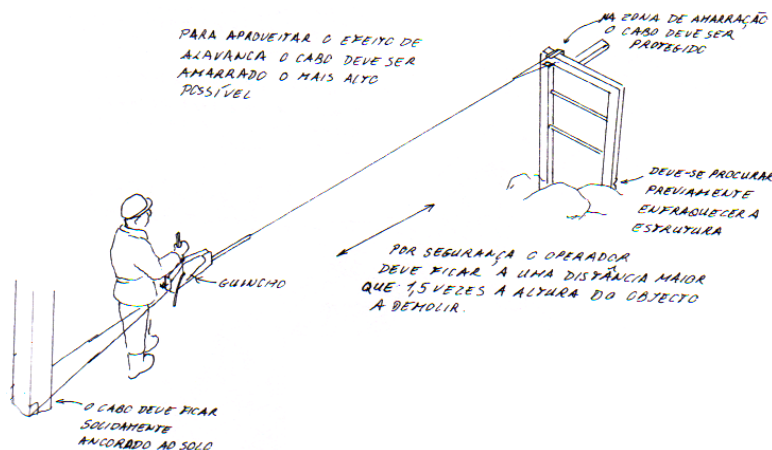 PARA APROVEITAR O EFEITO DE
ALAVANCA O CABO DEVE SER
AMARRADO O MAIS ALTO
POSSÍVEL
NA ZONA DE AMARRAÇÃO
O CABO DEVE SER
PROTEGIDO
DEVE-SE PROCURAR
PREVIAMENTE
ENFRAQUECER A
ESTRUTURA
GUINCHO
POR SEGURANÇA O OPERADOR
DEVE FICAR A UMA DISTÂNCIA MAIOR
QUE 1,5 VEZES A ALTURA DO OBJECTO
A DEMOLIR.
O CABO DEVE FICAR
SOLIDAMENTE
ANCORADO AO SOLO